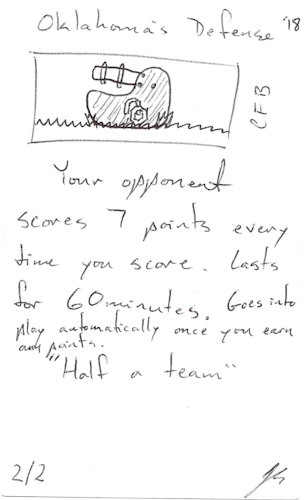 Oklahoma's Defense '18
CFB
Your opponent
scores 7 points every
time you score. Lasts
for 60 minutes. Goes into
play automatically once you earn
any points.
"Half a team"
2/2